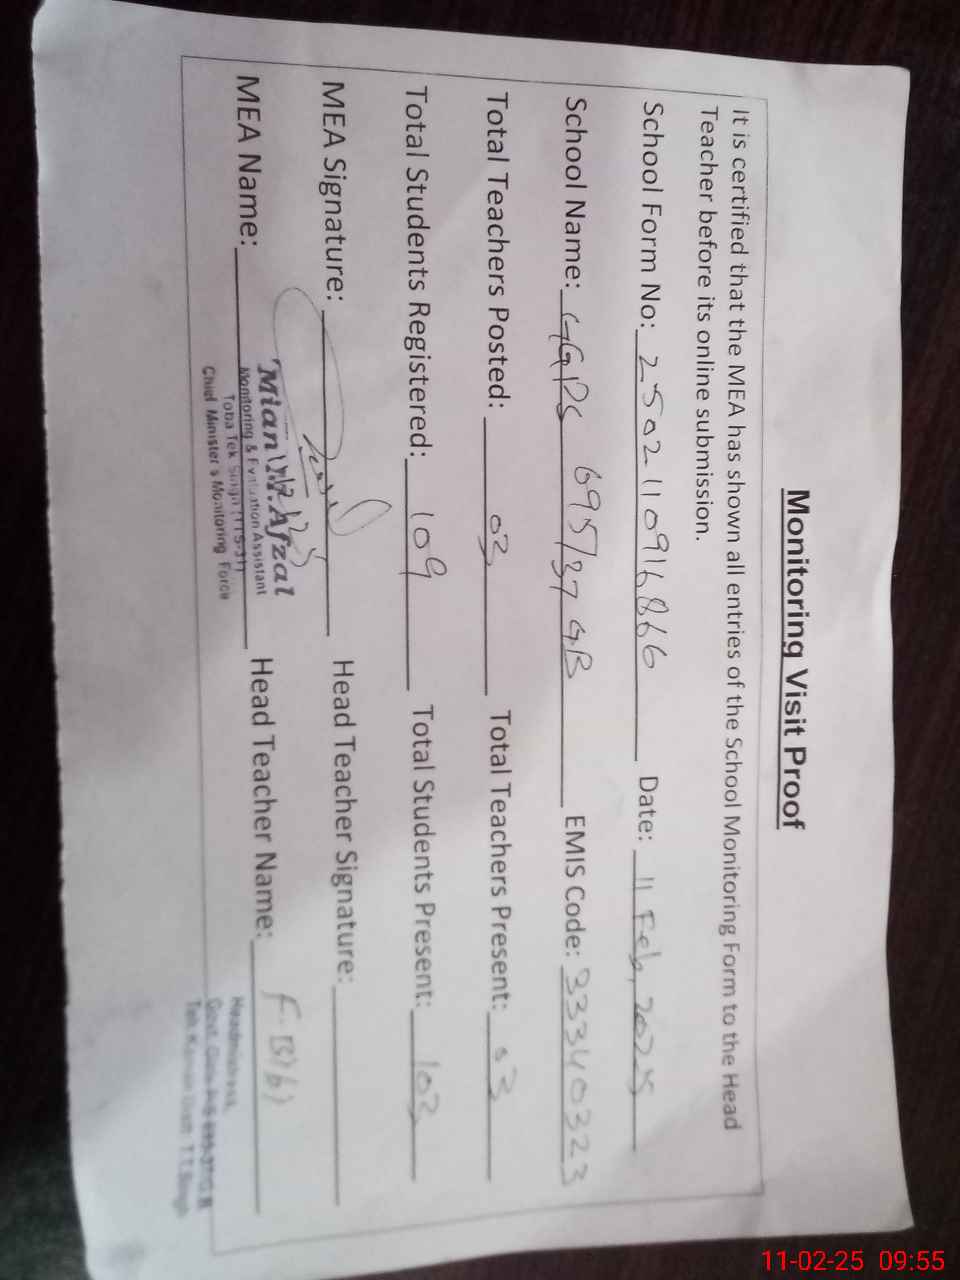 Monitoring Visit Proof
It is certified that the MEA has shown all entries of the School Monitoring Form to the Head
Teacher before its online submission.
School Form No: 2502110916866 Date: 11 Feb, 2025
School Name: GGPS 695/37 GB EMIS Code: 33340323
Total Teachers Posted: 03 Total Teachers Present: 03
Total Students Registered: 109 Total Students Present: 103
MEA Signature: Head Teacher Signature:
MEA Name: Mian M. Afzal Head Teacher Name: F. Bibi
Monitoring & Evaluation Assistant
Toba Tek Singh (TTS-31)
Chief Minister's Monitoring Force
Headmistress,
Govt. Girls
T.T.Singh
11-02-25 09:55